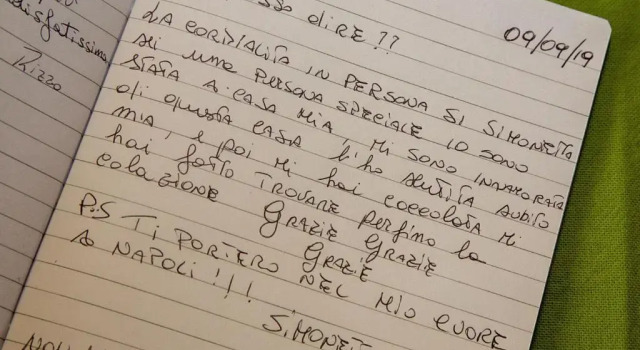 isfatissima
Rizzo
sso DIRE??
09/09/19
LA CORDIALITA IN PERSONA SI SIMONETTA
SEI UNA PERSONA SPECIALE IO SONO
STATA A CASA MIA, MI SONO INNAMORATA
di questa CASA l'ho sentita subito
MIA, e poi mi hai coccolata mi
hai fatto TROVARE perfino la
colazione GRAZIE GRAZIE
GRAZIE
P.S TI PORTERO NEL MIO CUORE
A NAPOLI!!!
SIMONET